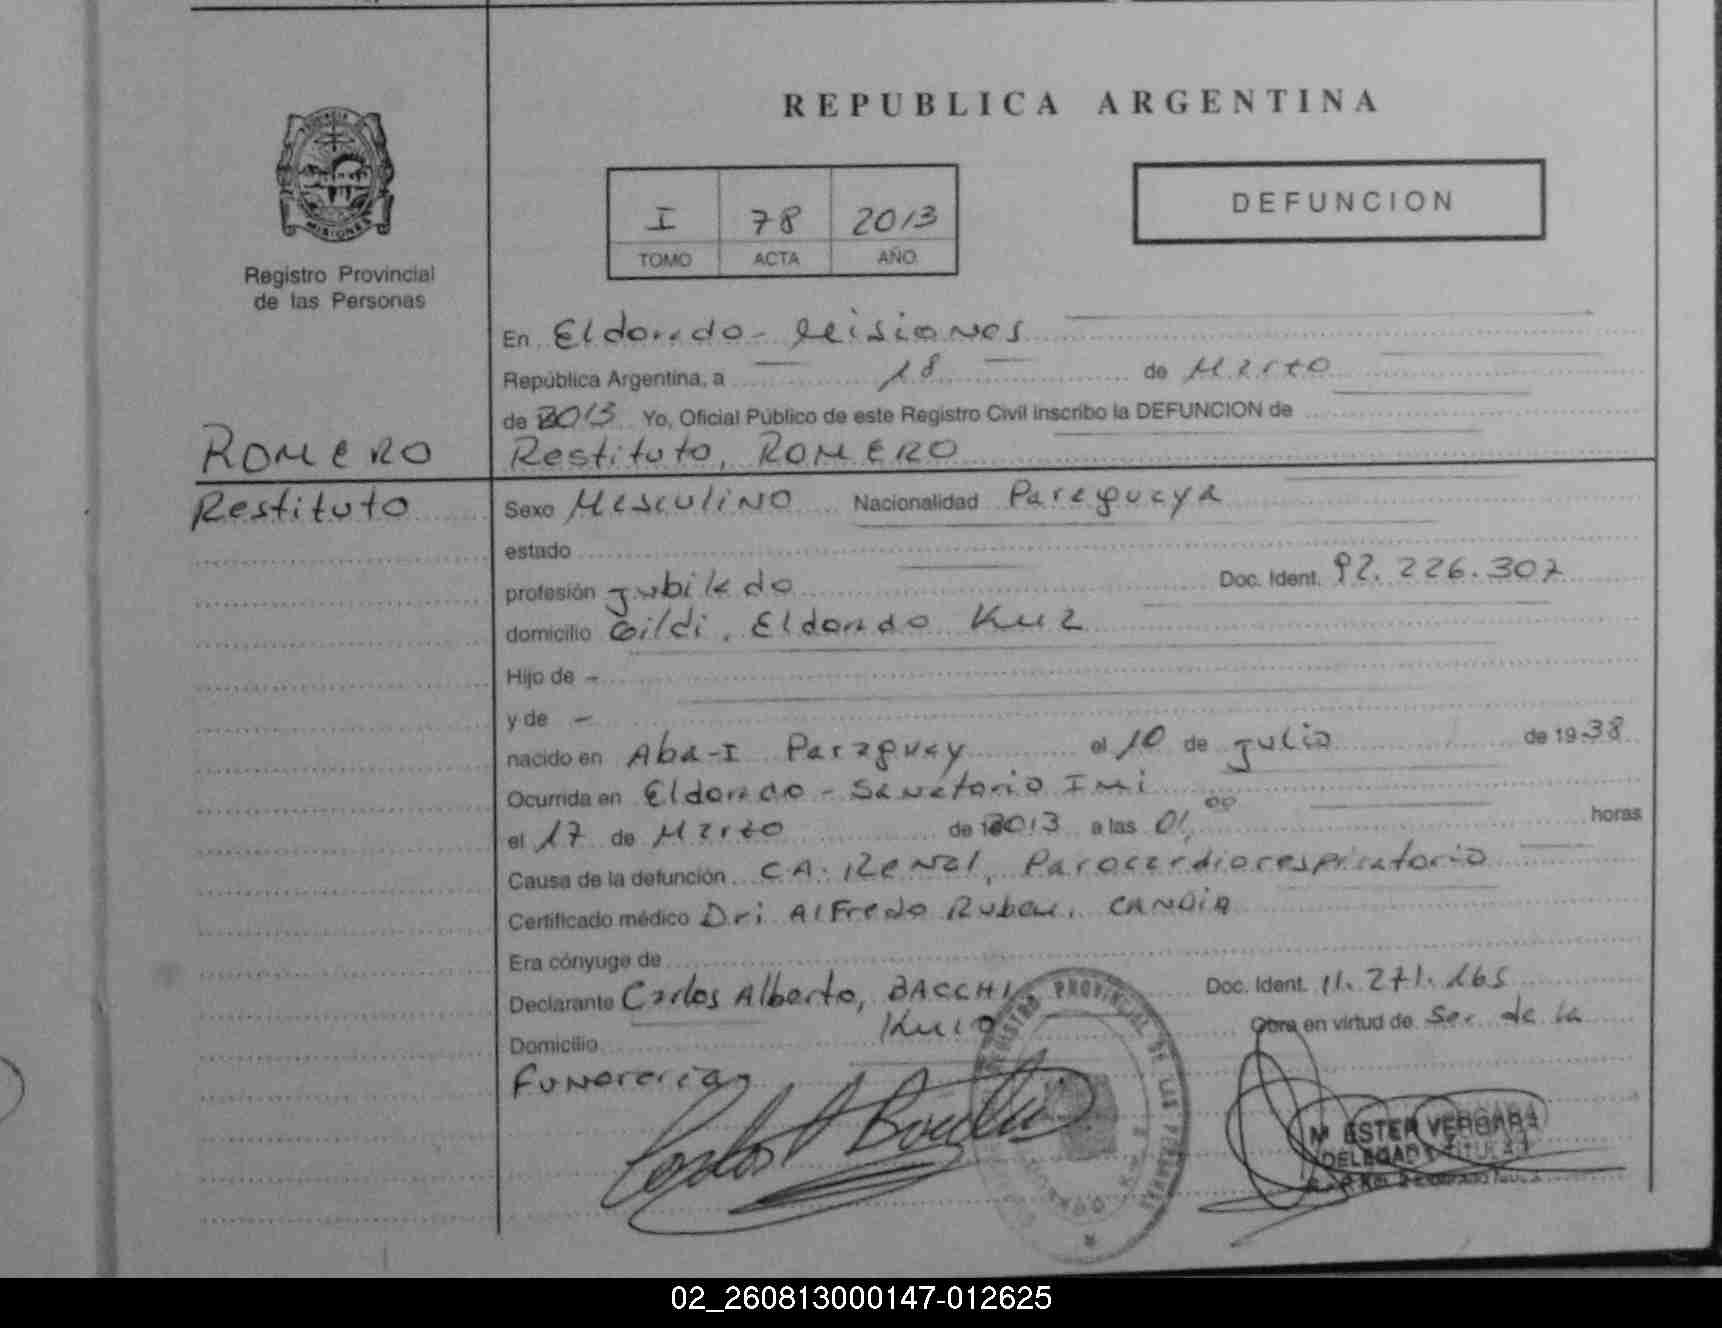 REPUBLICA ARGENTINA
MISIONES
Registro Provincial
de las Personas
I 78 2013
TOMO ACTA AÑO
DEFUNCION
En Eldorado - Misiones
República Argentina, a 18 de Marzo
de 2013 Yo, Oficial Público de este Registro Civil inscribo la DEFUNCION de
ROMERO
Restituto, ROMERO
Restituto
Sexo Masculino Nacionalidad Paraguaya
estado
profesión Jubilado Doc. Ident. 92.226.307
domicilio Eldorado Km 2
Hijo de -
y de -
nacido en Aba-I Paraguay el 10 de Julio de 1938
Ocurrida en Eldorado - Sanatorio Imi
el 17 de Marzo de 2013 a las 01,00 horas
Causa de la defunción CA. Renal, Parocardiorespiratorio
Certificado médico Dr: Alfredo Ruben, CANDIA
Era cónyuge de
Declarante Carlos Alberto, BACCHI Doc. Ident. 11.271.165
Km 10
Obra en virtud de Ser de la
Domicilio
Funeraria
REGISTRO PROVINCIAL DE LAS PERSONAS
Mª ESTER VERGARA
DELEGADA TITULAR
02_260813000147-012625